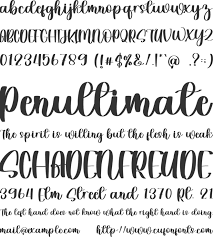 abcdefghijklmnopqrstuvwxyz
ABCDEFGHIJKLMNOPQRSTUVWXYZ
0123456789 (!#$%&/.|"@ .?:)
Penultimate
The spirit is willing but the flesh is weak
SCHADENFREUDE
3964 Elm Street and 1370 Rt. 21
The left hand does not know what the right hand is doing
mail@example.com http://www.cufonfonts.com